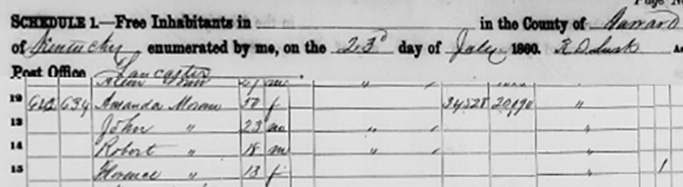 Page No
SCHEDULE 1.—Free Inhabitants in in the County of Garrard
of Kentucky enumerated by me, on the 23d day of July 1860. R D Lusk
Post Office Lancaster
12 642 634 Amanda 50 f 34528 "
13 John " 23 m " " "
14 Robert " 18 m " " "
15 Florence " 13 f " 1